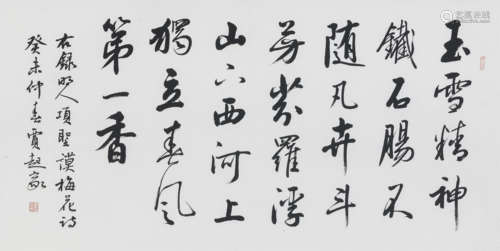 玉雪精神
鐵石腸不
随凡卉斗
芳菲羅浮
山下西河上
獨立春风
第一香
右録明人項聖謨梅花诗
癸未仲春賈起家